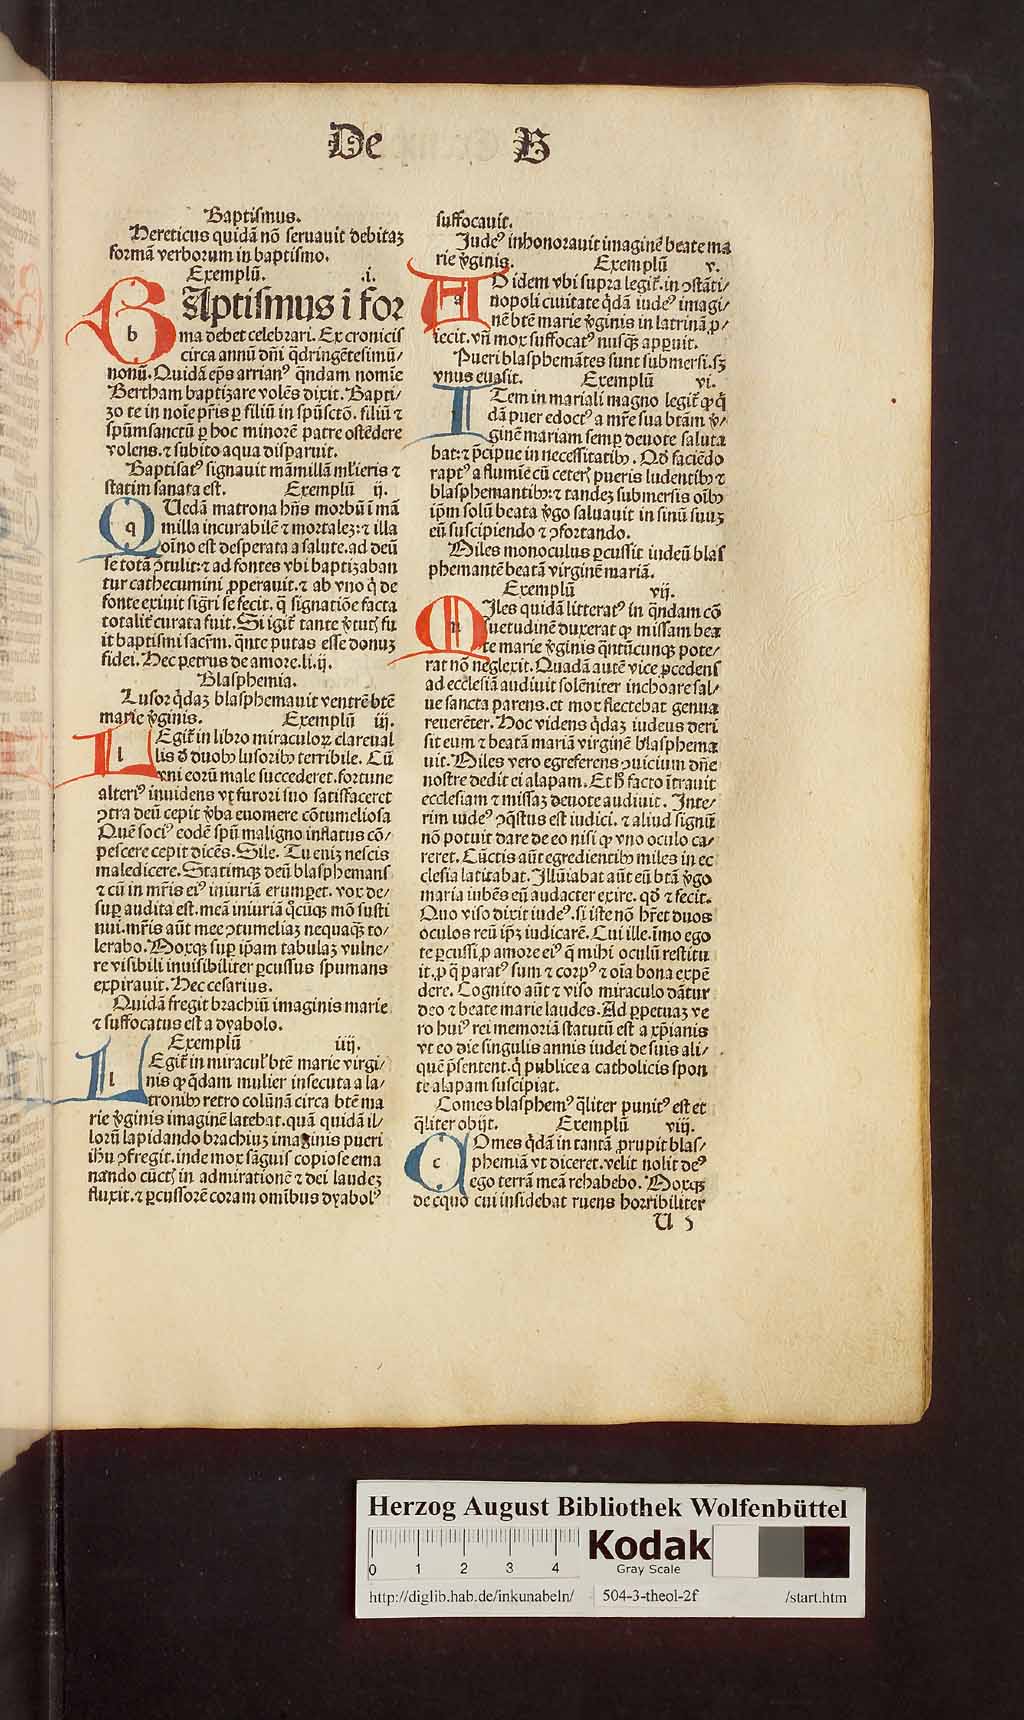 De B
Baptismus.
Hereticus quidā nō seruauit debitaꝫ
formā verborum in baptismo.
Exemplū. .i.
b Aptismus ī for
ma debet celebrari. Ex cronicis
circa annū dn̄i q̄dringētesimū/
nonū. Quidā ep̄s arrianꝰ q̄ndam nomīe
Bertham baptizare volēs dixit. Bapti/
zo te in noīe pr̄is ꝑ filiū in spūsctō. filiū ⁊
spūmsanctū ꝑ hoc minorē patre ostēdere
volens. ⁊ subito aqua disparuit.
Baptisatꝰ signauit māmillā ml̄ieris ⁊
statim sanata est. Exemplū ij.
q Uedā matrona hn̄s morbū ī mā
milla incurabilē ⁊ mortaleꝫ: ⁊ illa
oīno est desperata a salute. ad deū
se totā ↄtulit: ⁊ ad fontes vbi baptizaban
tur cathecumini ꝓperauit. ⁊ ab vno q̇ de
fonte exiuit sigr̄i se fecit. q̄ signatiōe facta
totalit̄ curata fuit. Si igit̄ tante v̓tutꝭ fu
it baptismi sacr̄m. q̄nte putas esse donuꝫ
fidei. Hec petrus de amore. li. ij.
Blasphemia.
Lusor q̇daꝫ blasphemauit ventrē btē
marie v̓ginis. Exemplū iij.
l Egit̄ in libro miraculoꝝ clareual
lis d̄ duobꝰ lusoribꝰ terribile. Cū
vni eorū male succederet. fortune
alteriꝰ inuidens vt furori suo satisfaceret
ↄtra deū cepit v̓ba euomere cōtumeliosa
Quē sociꝰ eodē spū maligno inflatus cō/
pescere cepit dicēs. Sile. Tu eniꝫ nescis
maledicere. Statimqꝫ deū blasphemans
⁊ cū in mr̄is eiꝰ iniuriā erumꝑet. vox de/
suꝑ audita est. meā iniuriā q̄lcūqꝫ mō susti
nui. mr̄is aūt mee ↄtumeliaꝫ nequaq̄ꝫ to/
lerabo. Moxqꝫ suꝑ ip̄am tabulaꝫ vulne/
re visibili inuisibiliter ꝑcussus spumans
expirauit. Hec cesarius.
Quidā fregit brachiū imaginis marie
⁊ suffocatus est a dyabolo.
Exemplū iiij.
l Egit̄ in miracul̓ btē marie virgi/
nis ꝙ q̄dam mulier insecuta a la/
tronibꝰ retro colūnā circa btē ma
rie v̓ginis imaginē latebat. quā quidā il/
lorū lapidando brachiuꝫ imaginis pueri
ihū ↄfregit. inde mox sāguis copiose ema
nando cūctꝭ in admirationē ⁊ dei laudeꝫ
fluxit. ⁊ ꝑcussorē coram omibus dyabolꝰ
suffocauit.
Iudeꝰ inhonorauit imaginē beate ma
rie v̓ginis. Exemplū v.
a D idem vbi supra legit̄. in ↄstāti/
nopoli ciuitate q̇dā iudeꝰ imagi/
nē btē marie v̓ginis in latrinā ꝓ/
iecit. vn̄ mox suffocatꝰ nusq̄ꝫ aꝑuit.
Pueri blasphemātes sunt submersi. sꝫ
vnus euasit. Exemplū vi.
i Tem in mariali magno legit̄ ꝙ q̇
dā puer edoctꝰ a mr̄e sua btām v̓/
ginē mariam semꝑ deuote saluta
bat: ⁊ p̄cipue in necessitatibꝰ. Qd̄ faciēdo
raptꝰ a flumīe cū ceterꝭ pueris ludentibꝰ ⁊
blasphemantibꝰ: ⁊ tandeꝫ submersis oībꝰ
ip̄m solū beata v̓go saluauit in sinū suuꝫ
eū suscipiendo ⁊ ↄfortando.
Miles monoculus ꝑcussit iudeū blas
phemantē beatā virginē mariā.
Exemplū vij.
m Iles quidā litteratꝰ in q̄ndam cō
suetudinē duxerat ꝙ missam bea
te marie v̓ginis q̄ntūcunqꝫ pote/
rat nō neglexit. Quadā autē vice ꝓcedens
ad ecclesiā audiuit solēniter inchoare sal/
ue sancta parens. et mox flectebat genua
reuerēter. Hoc videns q̇daꝫ iudeus deri
sit eum ⁊ beatā mariā virginē blasphema
uit. Miles vero egreferens ↄuicium dn̄e
nostre dedit ei alapam. Et h̄ facto ītrauit
ecclesiam ⁊ missaꝫ deuote audiuit. Inte/
rim iudeꝰ ↄq̄stus est iudici. ⁊ aliud signū
nō potuit dare de eo nisi ꝙ vno oculo ca/
reret. Cūctis aūt egredientibꝰ miles in ec
clesia latitabat. Illūīabat aūt eū btā v̓go
maria iubēs eū audacter exire. qd̄ ⁊ fecit.
Quo viso dixit iudeꝰ. si iste nō hr̄et duos
oculos reū ip̄ꝫ iudicarē. Cui ille. īmo ego
te ꝑcussi ꝓ amore eiꝰ q̄ mihi oculū restitu
it. ꝓ q̄ paratꝰ sum ⁊ corpꝰ ⁊ oīa bona expē
dere. Cognito aūt ⁊ viso miraculo dātur
deo ⁊ beate marie laudes. Ad ꝑpetuaꝫ ve
ro huiꝰ rei memoriā statutū est a xp̄ianis
vt eo die singulis annis iudei de suis ali/
quē p̄sentent. q̇ publice a catholicis spon
te alapam suscipiat.
Comes blasphemꝰ q̄liter punitꝰ est et
q̄liter obijt. Exemplū viij.
c Omes q̇dā in tantā ꝓrupit blas/
phemiā vt diceret. velit nolit deꝰ
ego terrā meā rehabebo. Moxqꝫ
de equo cui insidebat ruens horribiliter
U 3
Herzog August Bibliothek Wolfenbüttel
0 1 2 3 4
Kodak
Gray Scale
http://diglib.hab.de/inkunabeln/ 504-3-theol-2f /start.htm